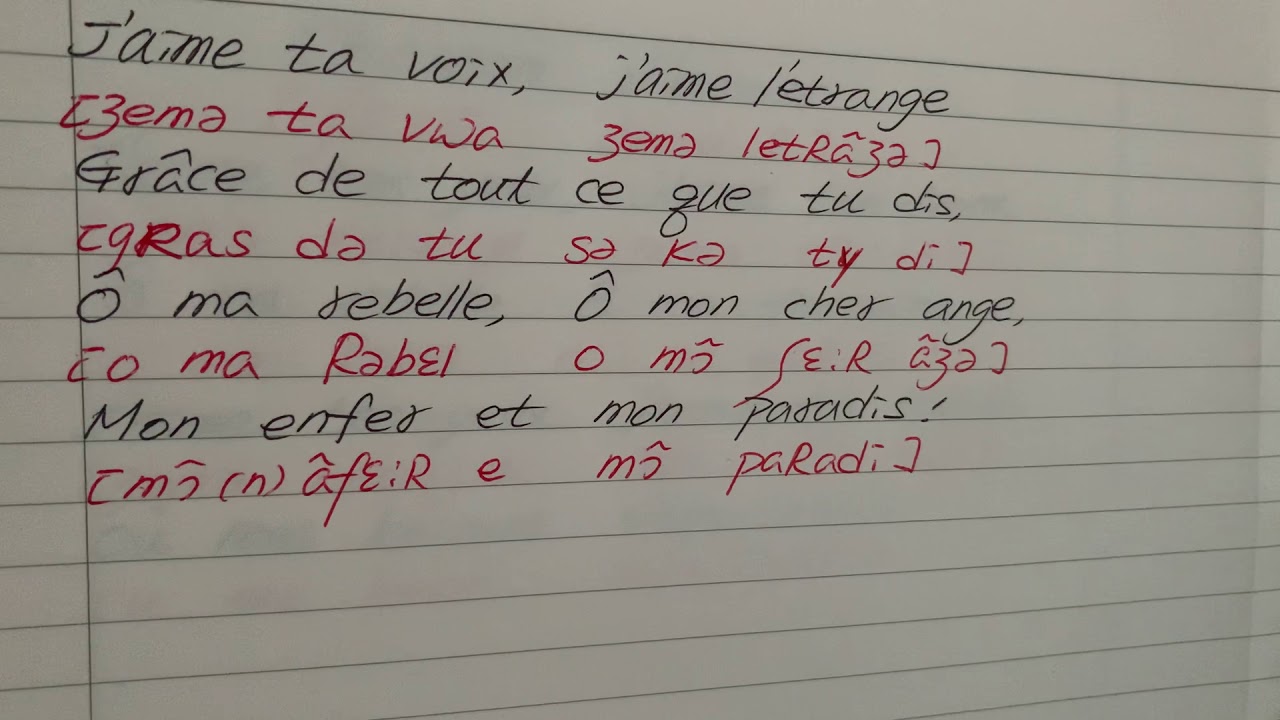 J'aime ta voix, j'aime l'étrange
[ʒemə ta vwa ʒemə letRãʒə]
Grâce de tout ce que tu dis,
[gRas də tu sə kə ty di]
Ô ma rebelle, Ô mon cher ange,
[o ma Rəbɛl o mɔ̃ ʃɛ:R ãʒə]
Mon enfer et mon paradis!
[mɔ̃(n) ãfɛ:R e mɔ̃ paRadi]